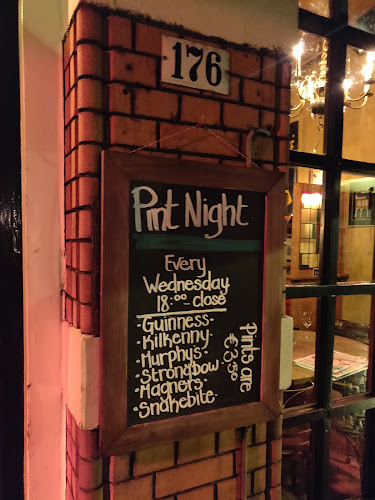 176
Pint Night
Every
Wednesday
18:00-close
-Guinness-
-Kilkenny-
-Murphys-
-Strongbow-
-Magners-
-Snakebite-
Pints are
€3,50